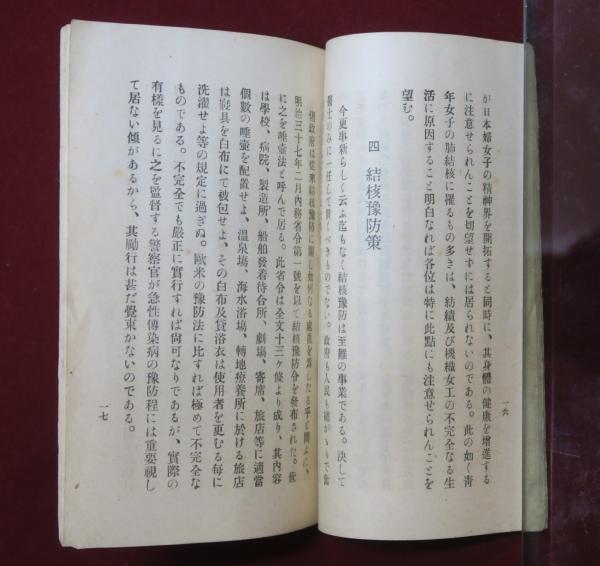 が日本婦女子の精神界を開拓すると同時に、其身體の健康を增進する
に注意せられんことを切望せずには居られないのである。此の如く靑
年女子の肺結核に罹るもの多きは、紡績及び機織女工の不完全なる生
活に原因すること明白なれば各位は特に此點にも注意せられんことを
望む。
四 結核豫防策
今更事新らしく云ふ迄もなく結核豫防は至難の事業である。決して
醫士のみに一任して置くべきものでない。政府も人民も總がゝりで
政府は從來結核豫防に關し如何なる處置を爲したる乎と問ふに、
明治三十七年二月內務省令第一號を以て結核豫防令を發布された。世
に之を唾壺法と呼んで居る。此省令は全文十三ケ條より成り、其內容
は學校、病院、製造所、船舶發着待合所、劇場、寄席、旅店等に適當
個數の唾壺を配置せよ、溫泉場、海水浴場、轉地療養所に於ける旅店
は寢具を白布にて被包せよ、その白布及貸浴衣は使用者を更むる每に
洗濯せよ等の規定に過ぎぬ。歐米の豫防法に比すれば極めて不完全な
ものである。不完全でも嚴正に實行すれば尙可なりであるが、實際の
有樣を見るに之を監督する警察官が急性傳染病の豫防程には重要視し
て居ない傾があるから、其勵行は甚だ覺束かないのである。
一六
一七